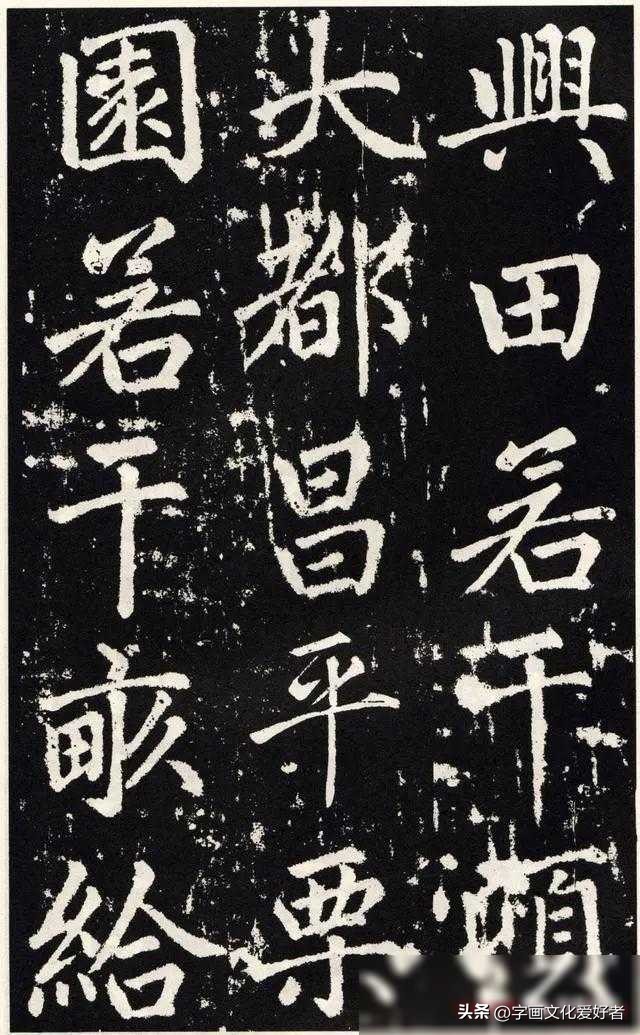 興田若干頃
大都昌平栗
園若干畝給
头条 @字画文化爱好者